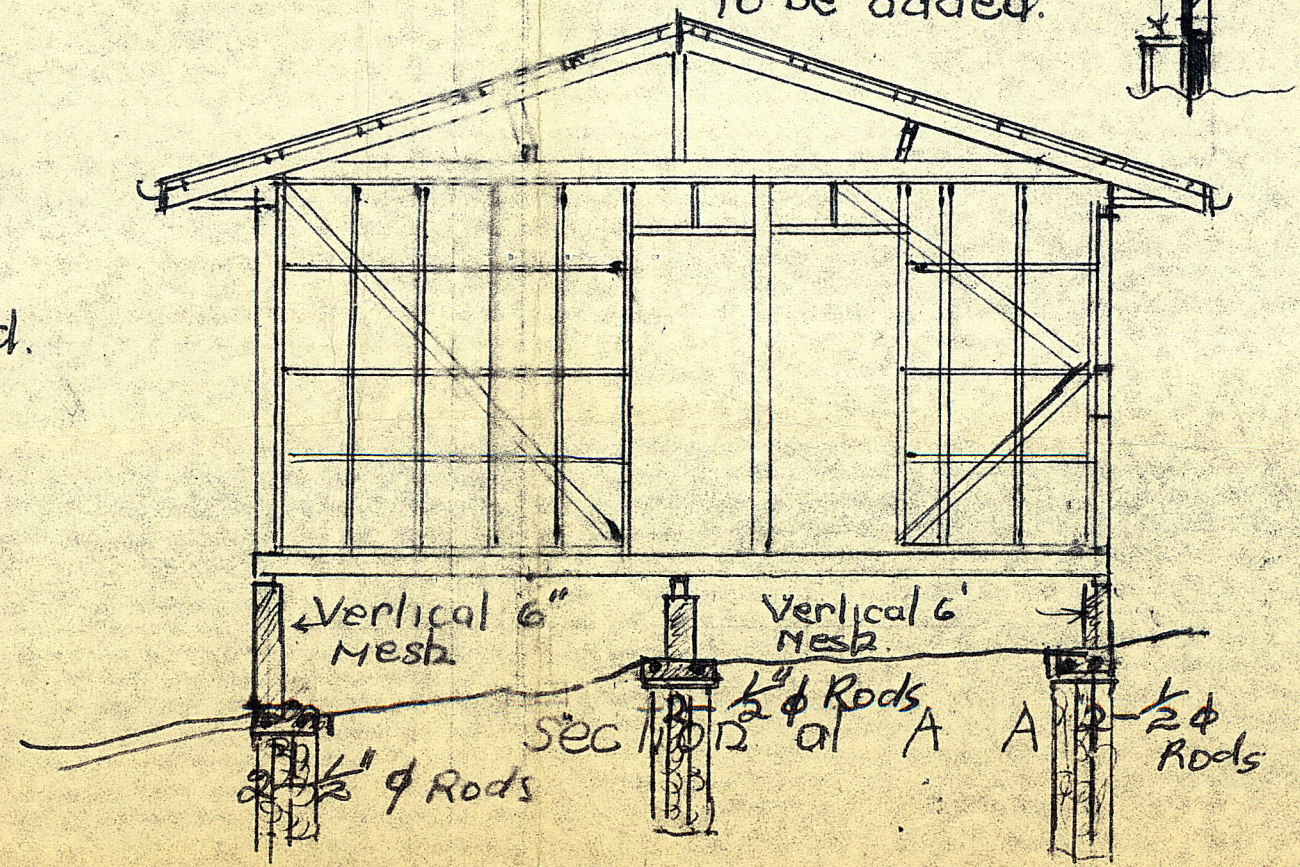 To be added.
d.
Vertical 6"
Mesh
Vertical 6'
Mesh.
2-½"ϕ Rods
Section at A A
2-½ϕ
Rods
2-½" ϕ Rods